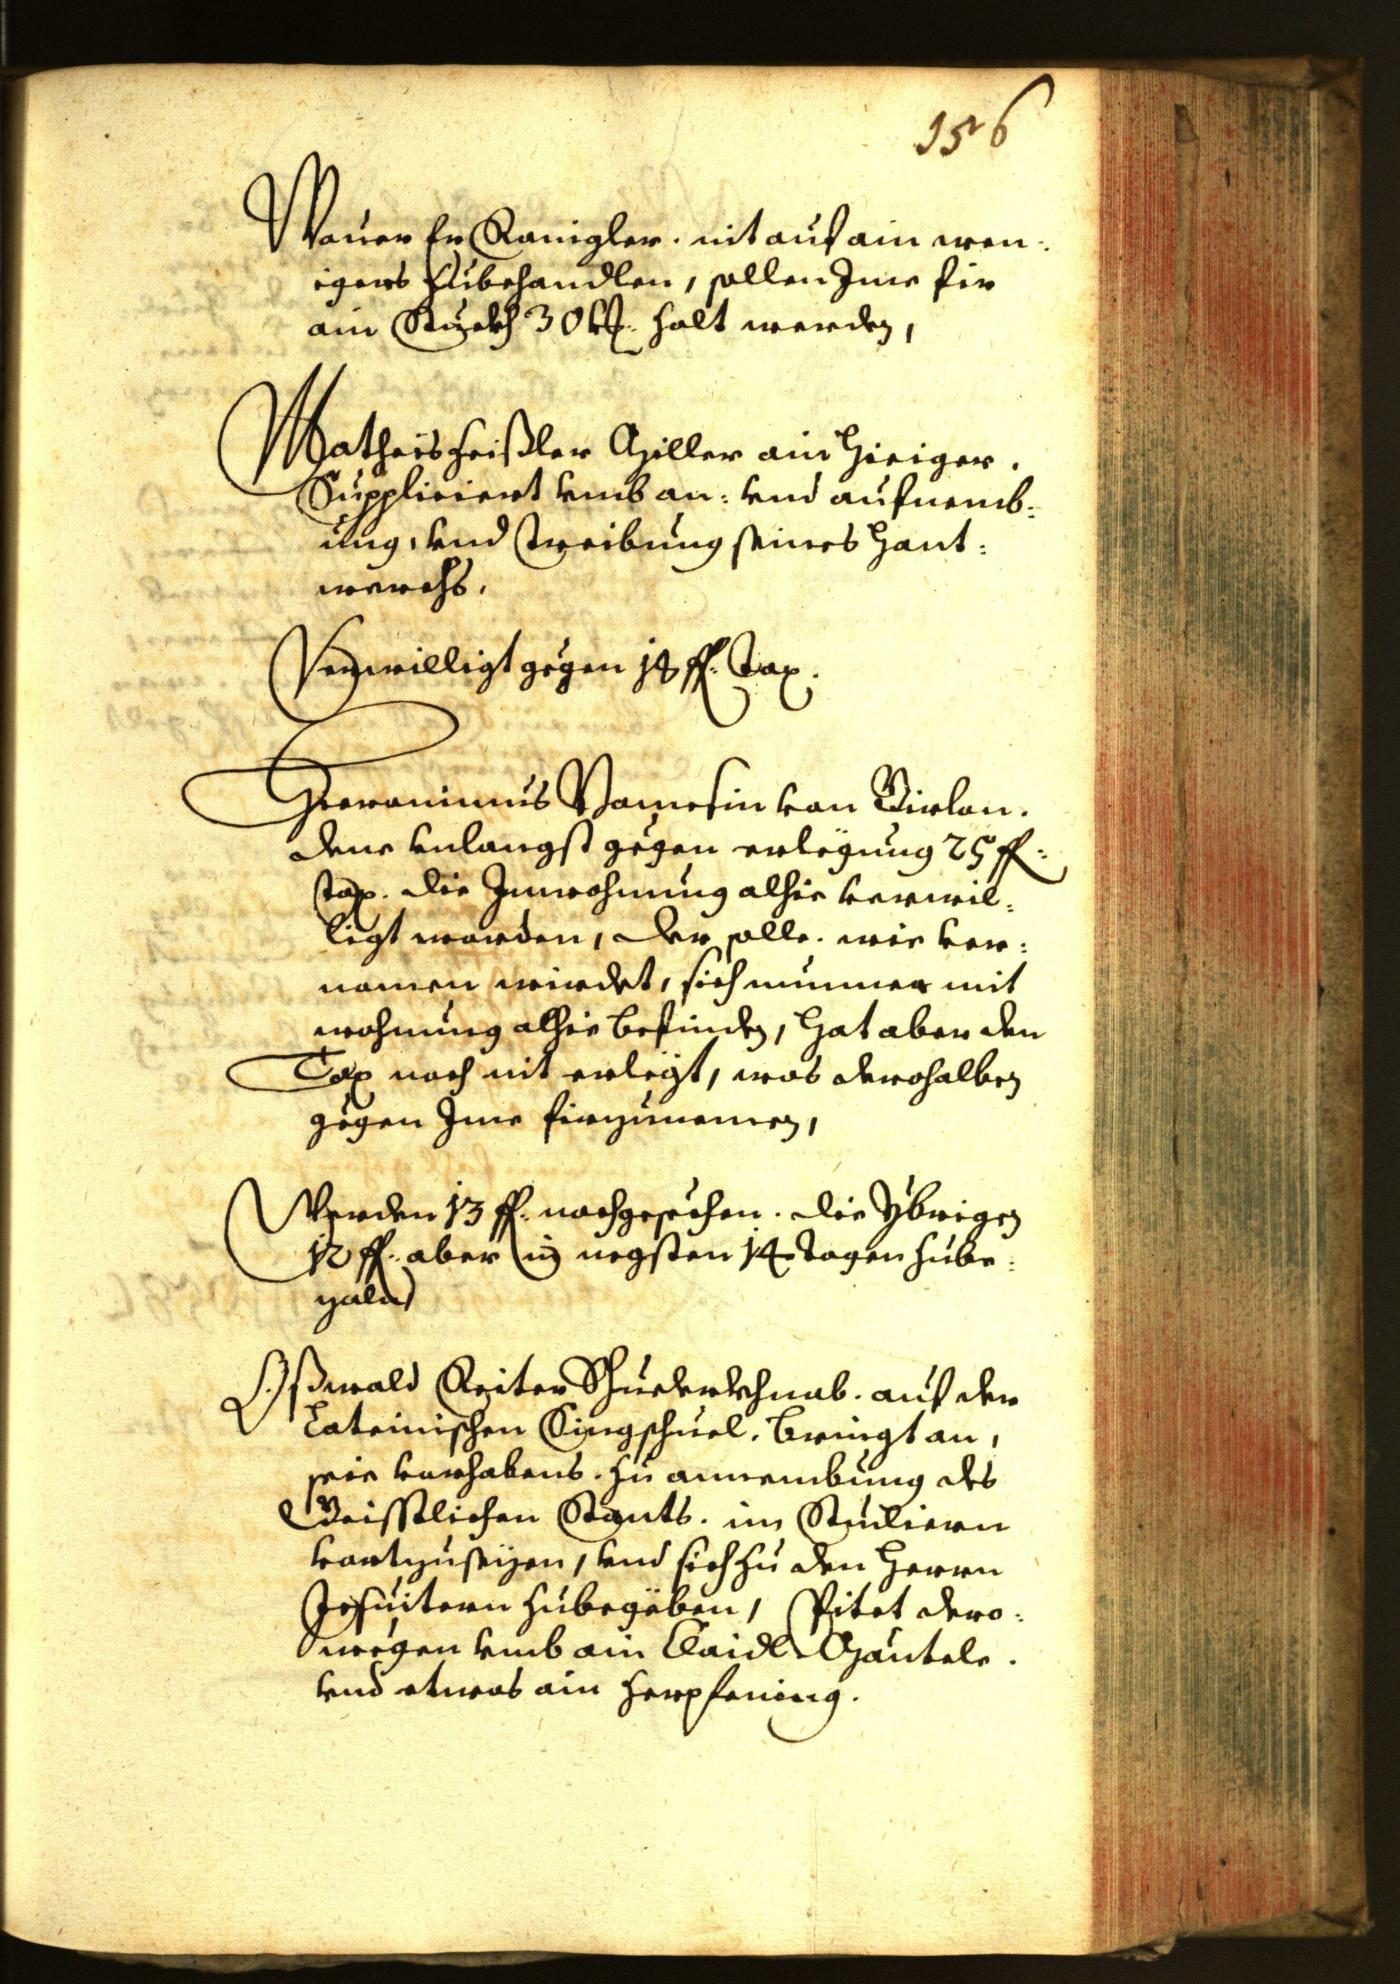 156
Wouer Er Ranigler. nit auf ain wen=
igers zubehandlen, sollen Ime fir
ain Stuckh 30 kr. halt werden,
Matheis heißler Miller ain hieiger.
Suppliciert vmb an= vnd aufnemb=
ung, vnd treibung seines hant=
werchs.
Verwilligt gegen 18 fl. tax.
Hieronimus von
deme vnlangst gegen erlegung 25 fl=
tax. die Inwohnung alhie verwil=
ligt worden, der solle. wie ver=
nomen wirdet, sich nunmer mit
wohnung alhie befinden, hat aber den
Tax noch nit erlegt, was derohalben
gegen Ime firzunemen,
Werden 13 fl. nochgesechen. die ybrigen
12 fl. aber in negsten 14 tagen zube=
zaln
Oßwald Reiter auf der
Lateinischen Singschuel. bringt an,
seie vorhabens. zu annembung des
Geistlichen Stants. im Studiern
fortzusezen, vnd sich zu den herrn
Jesuitern zubegeben, Pitet dero=
wegen vmb ain Claidl Mäntele.
vnd etwas ain zerpfening.